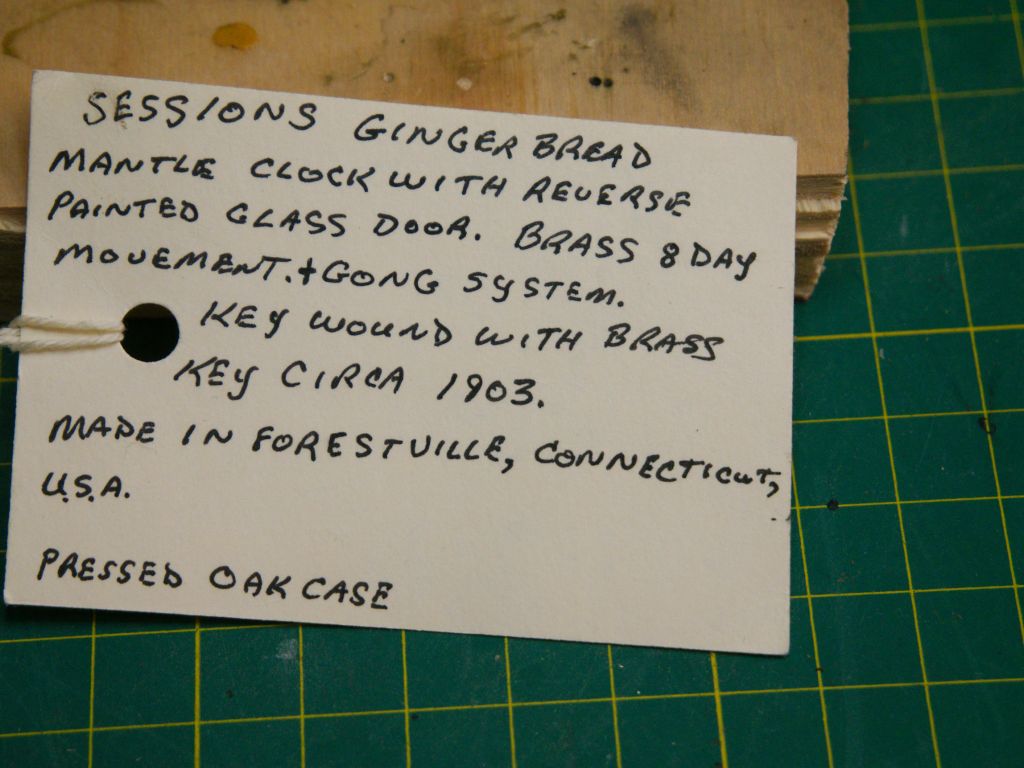 SESSIONS GINGERBREAD
MANTLE CLOCK WITH REVERSE
PAINTED GLASS DOOR. BRASS 8 DAY
MOVEMENT. + GONG SYSTEM.
KEY WOUND WITH BRASS
KEY CIRCA 1903.
MADE IN FORESTVILLE, CONNECTICUT,
U.S.A.
PRESSED OAK CASE